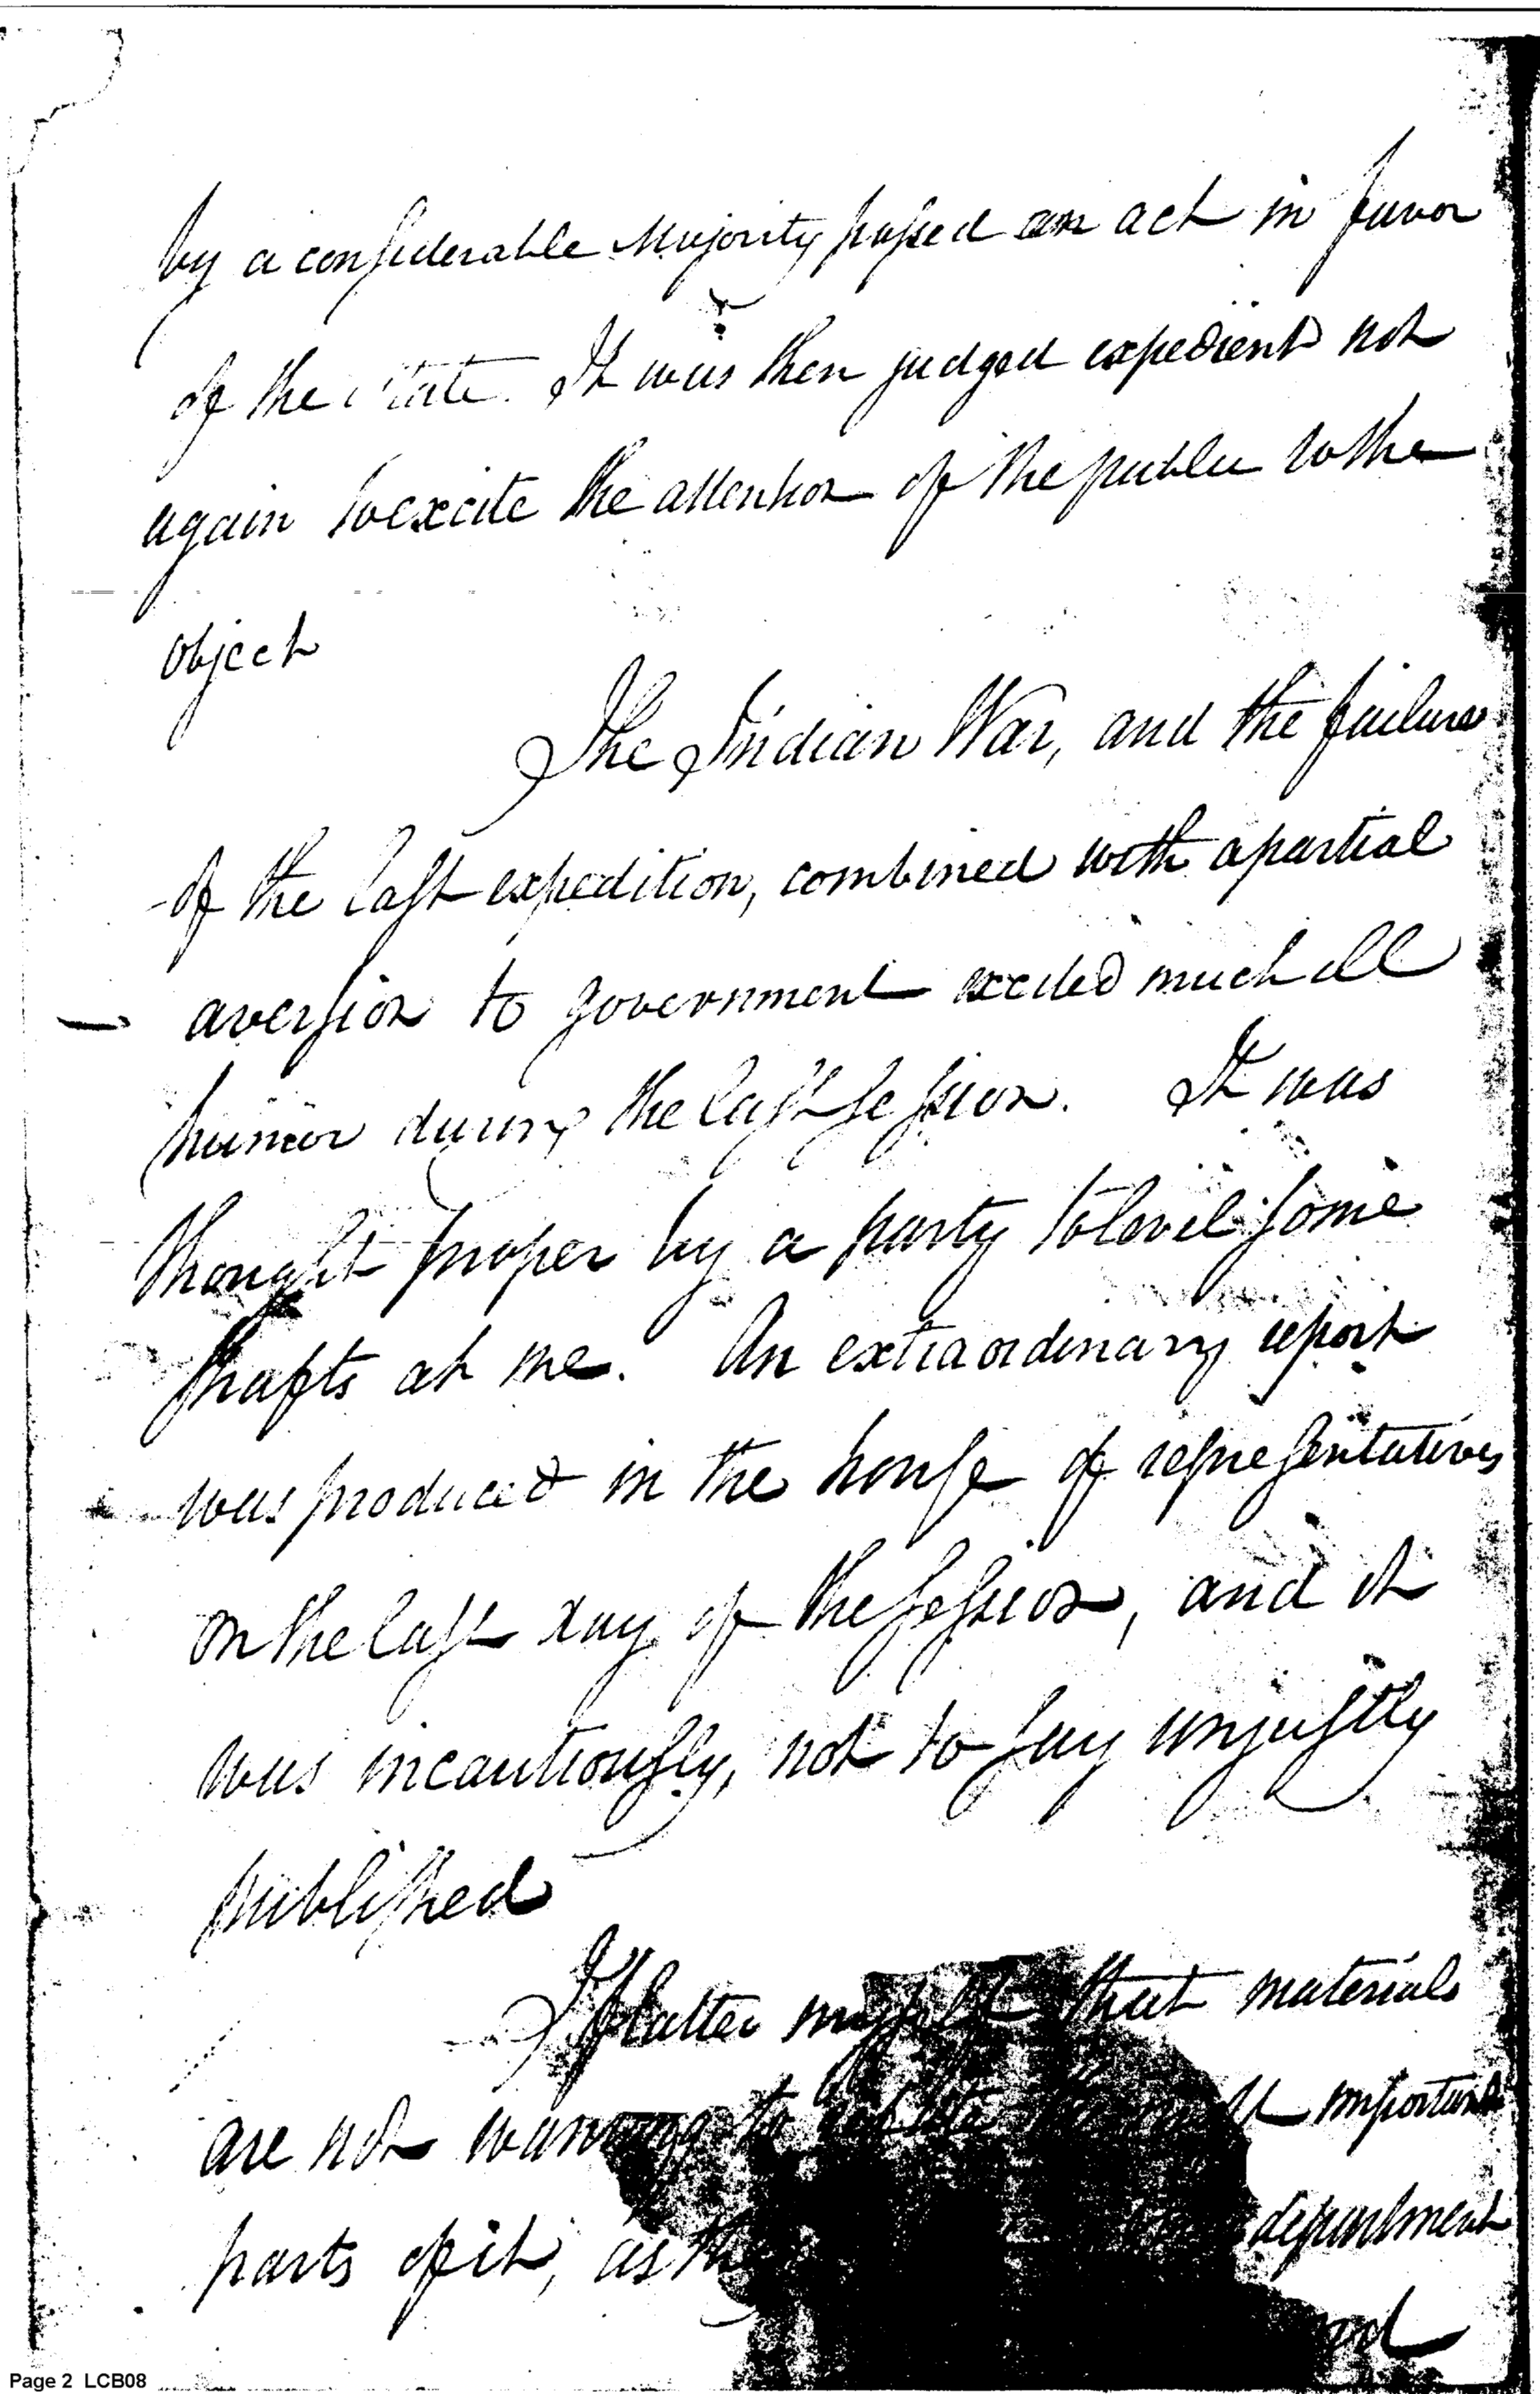 by a considerable Majority passed an act in favor
of the state. It was then judged expedient not
again to excite the attention of the public to the
object
The Indian War, and the failure
of the last expedition, combined with a partial
aversion to government excited much ill
humor during the last session. It was
thought proper by a party to level some
shafts at me. An extraordinary report
was produced in the house of representatives
on the last day of the session, and it
was incautiously, not to say unjustly
published
I flatter myself that materials
are not wanting to important
parts of it, as department
Page 2 LCB08